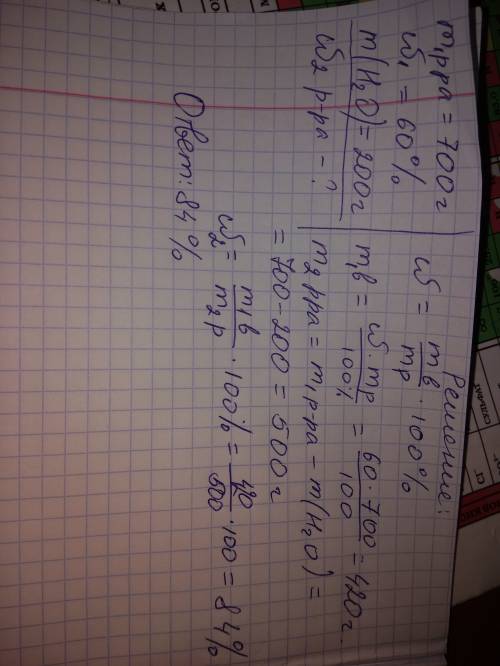 m₁р-ра = 700г
ω₁ = 60%
m(H₂O) = 200г
ω₂ р-ра - ?
Решение:
ω = mв/mр · 100%
m₁в = ω·mр/100% = 60·700/100 = 420г
m₂р-ра = m₁р-ра - m(H₂O) =
= 700-200 = 500г
ω₂ = m₁в/m₂р · 100% = 420/500 · 100 = 84%
Ответ: 84%